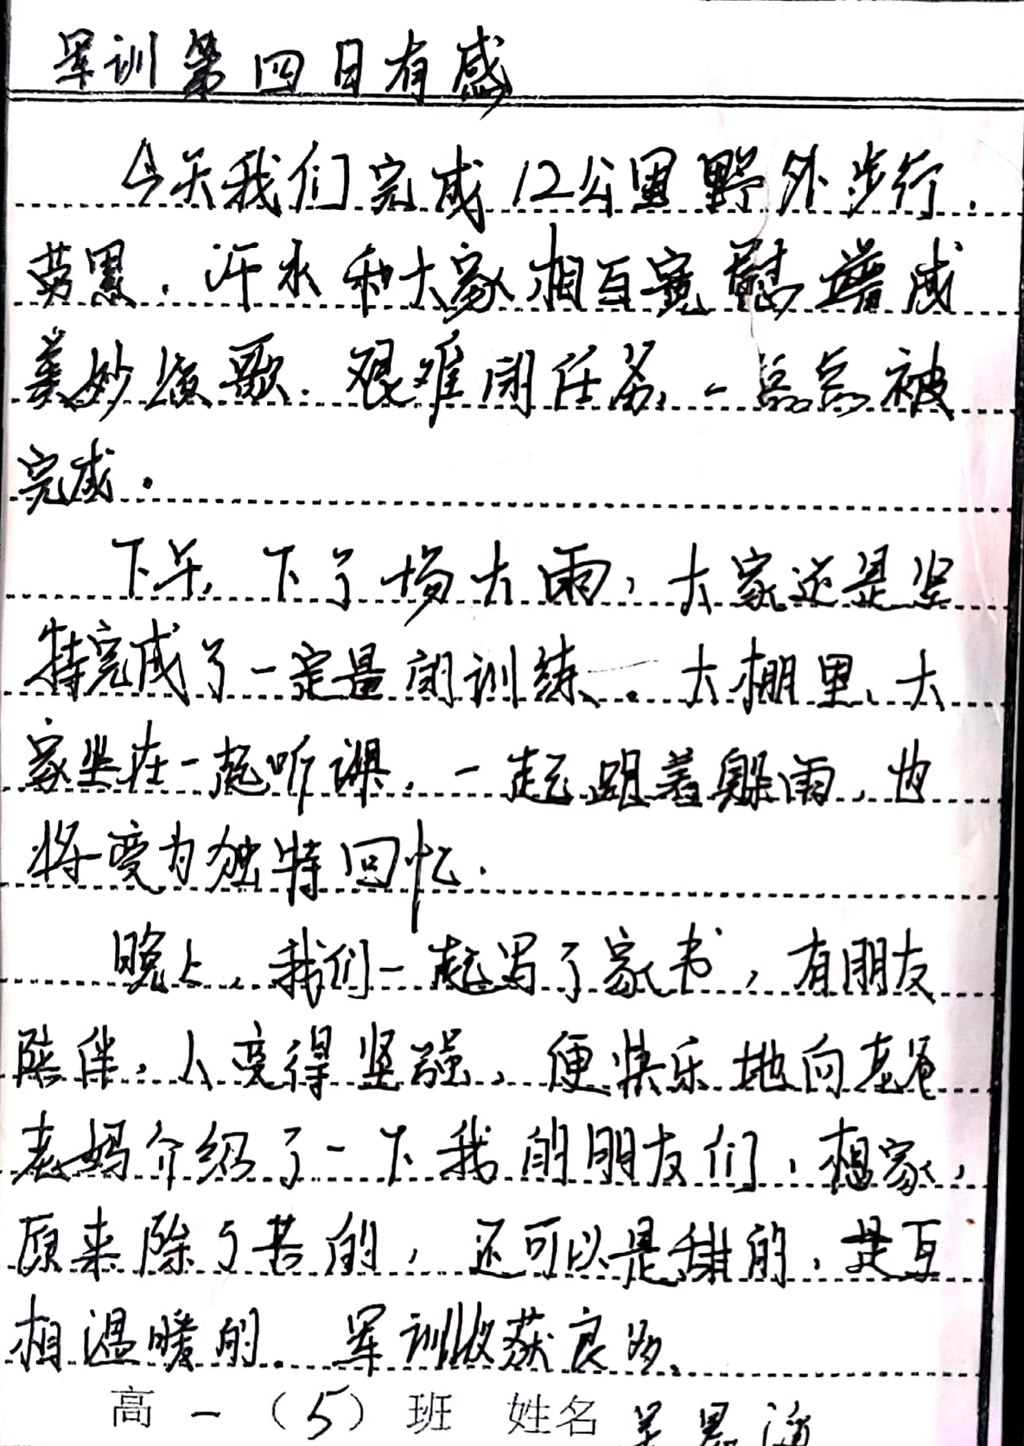 军训第四日有感
今天我们完成12公里野外步行，
劳累，汗水和大家相互宽慰谱成
美妙演歌。艰难的任务，一点点被
完成。
下午，下了场大雨，大家还是坚
持完成了一定量的训练。大棚里，大
家坐在一起听课，一起跟着躲雨，也
将变为独特回忆。
晚上，我们一起写了家书，有朋友
陪伴，人变得坚强，便快乐地向老爸
老妈介绍了一下我的朋友们，想家，
原来除了苦的，还可以是甜的，是互
相温暖的。军训收获良多。
高一（5）班 姓名